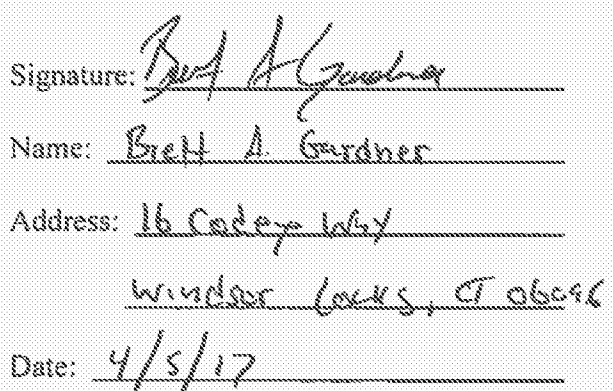 Signature: Brett A Gardner
Name: Brett A. Gardner
Address: 16 Codey Way
Windsor Locks, CT 06096
Date: 4/5/17